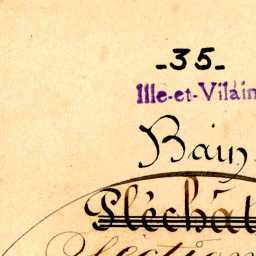 -35-
Ille-et-Vilain
Bain
Pléchât
Section